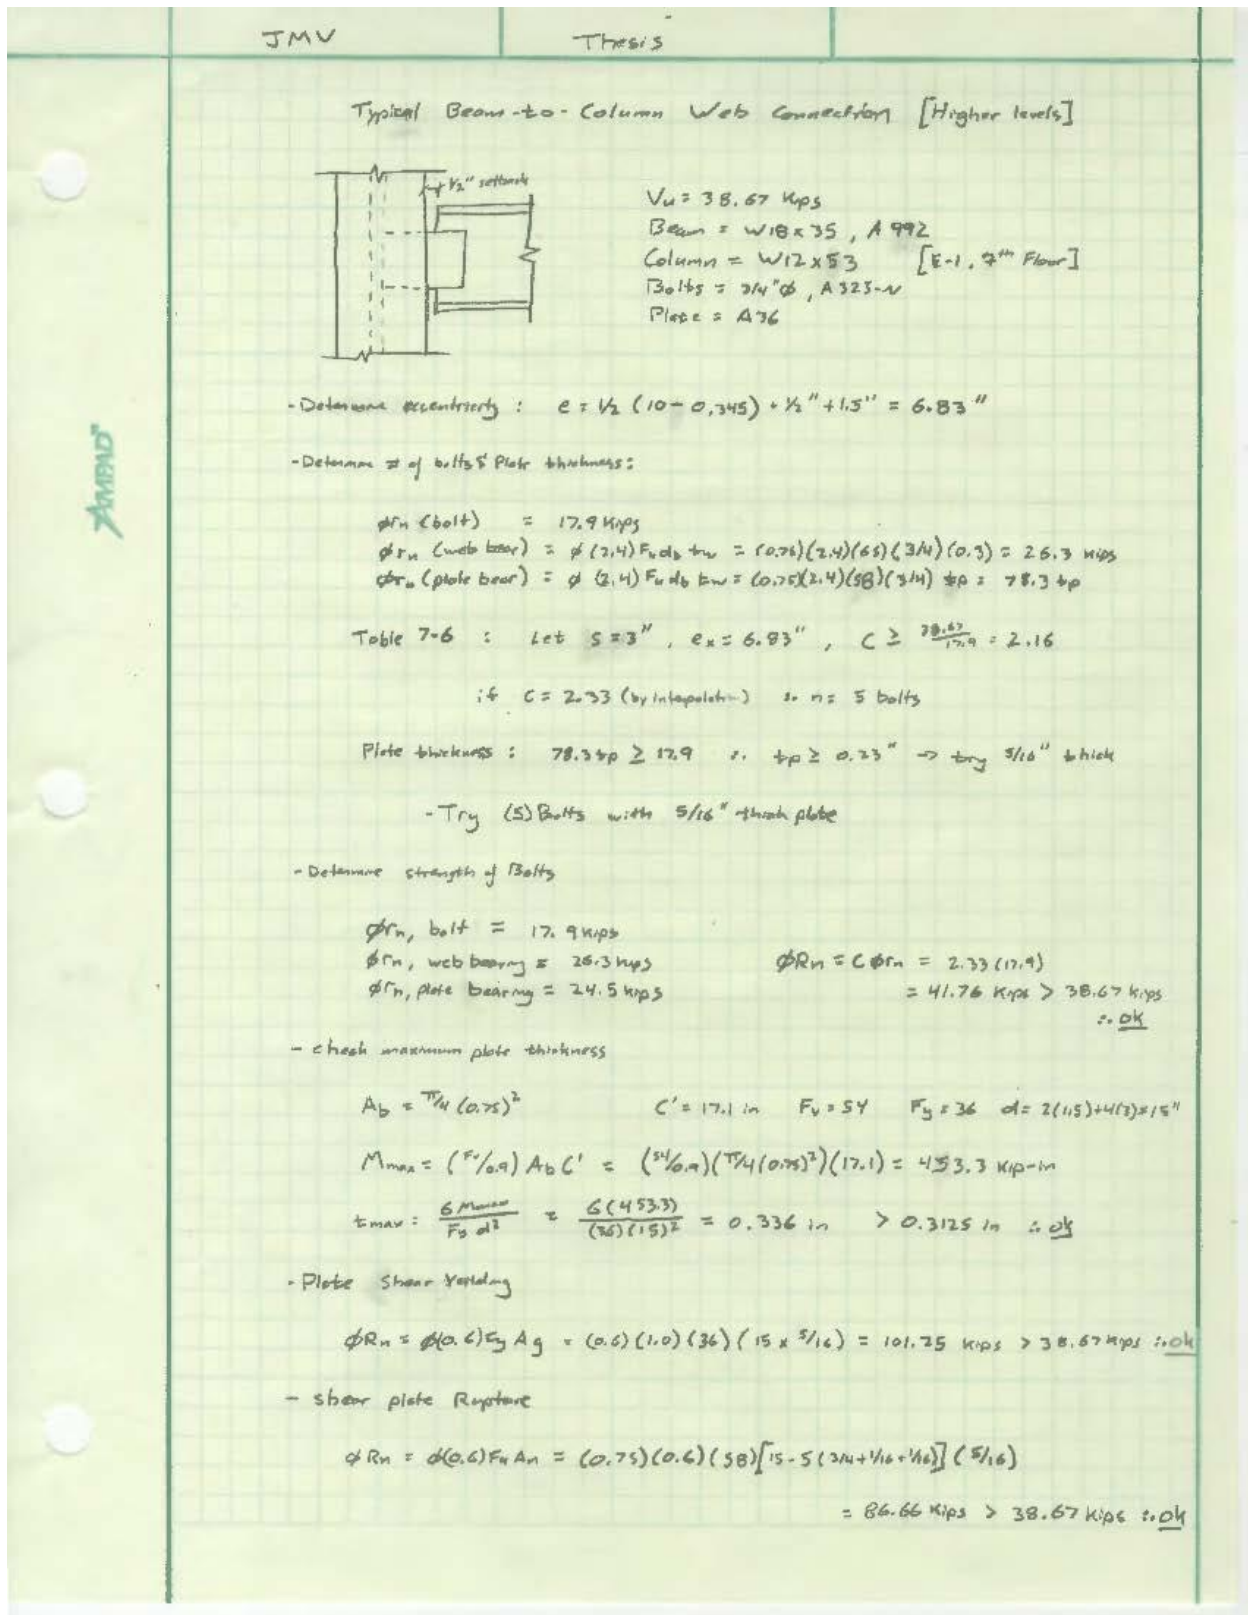 JMV Thesis
Typical Beam-to-Column Web Connection [Higher levels]
1/2" setback
Vu = 38.67 kips
Beam = W18x35, A992
Column = W12x53 [E-1, 7th Floor]
Bolts = 3/4"ø, A325-N
Plate = A36
AMPAD
- Determine eccentricity : e = 1/2 (10 - 0.345) + 1/2" + 1.5" = 6.83"
- Determine # of bolts & Plate thickness:
ørn (bolt) = 17.9 kips
ørn (web bear) = ø (2.4) Fu db tw = (0.75)(2.4)(65)(3/4)(0.3) = 26.3 kips
ørn (plate bear) = ø (2.4) Fu db tw = (0.75)(2.4)(58)(3/4) tp = 78.3 tp
Table 7-6 : Let s = 3", ex = 6.83", C ≥ 38.67/17.9 = 2.16
if C = 2.33 (by interpolation) ∴ n = 5 bolts
Plate thickness : 78.3tp ≥ 17.9 ∴ tp ≥ 0.23" → try 5/16" thick
- Try (5) Bolts with 5/16" thick plate
- Determine strength of Bolts
ørn, bolt = 17.9 kips
ørn, web bearing = 26.3 kips øRn = C ørn = 2.33 (17.9)
ørn, plate bearing = 24.5 kips = 41.76 kips > 38.67 kips
∴ ok
- check maximum plate thickness
Ab = π/4 (0.75)² C' = 17.1 in Fv = 54 Fy = 36 d = 2(1.5)+4(3)=15"
Mmax = (Fv/0.9) Ab C' = (54/0.9)(π/4(0.75)²)(17.1) = 453.3 kip-in
tmax = 6 Mmax/Fy d² = 6(453.3)/(36)(15)² = 0.336 in > 0.3125 in ∴ ok
- Plate Shear Yielding
øRn = ø(0.6)Fy Ag = (0.6)(1.0)(36)(15 x 5/16) = 101.25 kips > 38.67 kips ∴ ok
- shear plate Rupture
øRn = ø(0.6)Fu An = (0.75)(0.6)(58)[15-5(3/4+1/16+1/16)](5/16)
= 86.66 kips > 38.67 kips ∴ ok